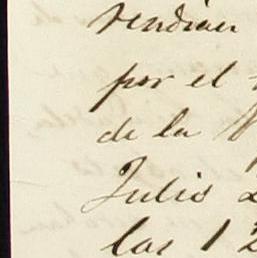 rendian
por el
de la
Julio
las 12